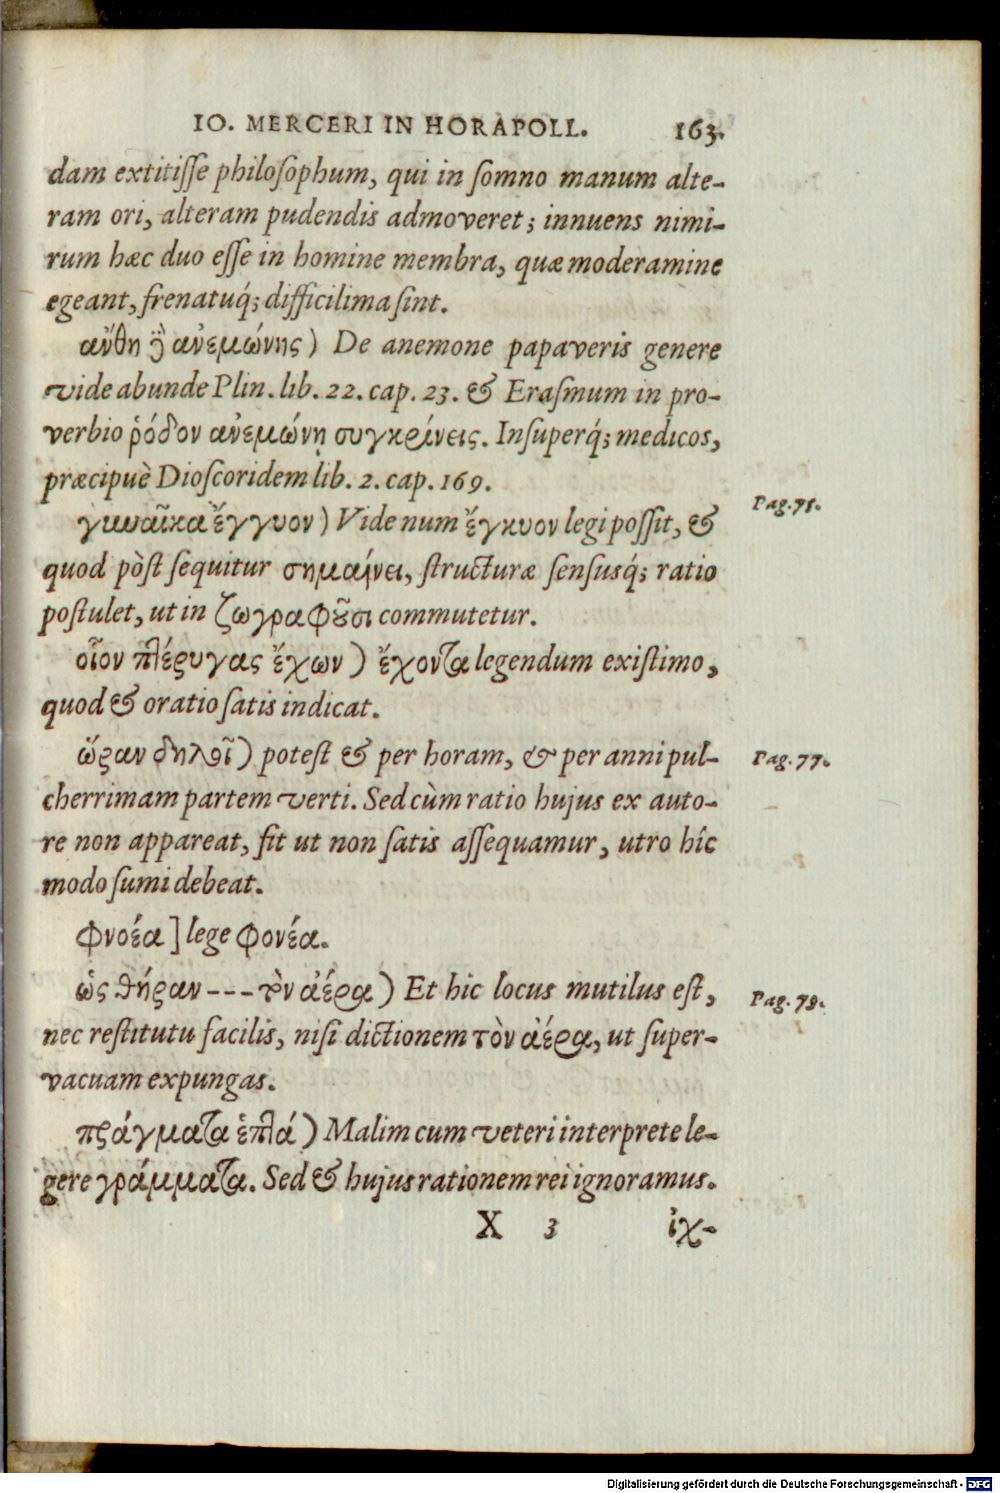 IO. MERCERI IN HORAPOLL. 163.
dam extitiſſe philoſophum, qui in ſomno manum alte-
ram ori, alteram pudendis admoveret; innuens nimi-
rum hæc duo eſſe in homine membra, quæ moderamine
egeant, frenatuq́; difficilima ſint.
αὔθη ἢ ἀνεμώνης) De anemone papaveris genere
vide abunde Plin. lib. 22. cap. 23. & Eraſmum in pro-
verbio ῥόδον ἀνεμώνῃ συγκρίνεις. Inſuperq́; medicos,
præcipuè Dioſcoridem lib. 2. cap. 169.
γυναῖκα ἔγγυον) Vide num ἔγκυον legi poſſit, &
Pag. 75.
quod pòſt ſequitur σημαίνει, ſtructuræ ſensusq́; ratio
poſtulet, ut in ζωγραφοῦσι commutetur.
οἷον πτέρυγας ἔχων) ἔχοντα legendum exiſtimo,
quod & oratio ſatis indicat.
ὥραν δηλοῖ) poteſt & per horam, & per anni pul-
Pag. 77.
cherrimam partem verti. Sed cùm ratio hujus ex auto-
re non appareat, fit ut non ſatis aſſequamur, utro hîc
modo ſumi debeat.
φνοέα] lege φονέα.
ὡς θήραν --- τὸν ἀέρα) Et hic locus mutilus eſt,
Pag. 79.
nec reſtitutu facilis, niſi dictionem τὸν ἀέρα, ut ſuper-
vacuam expungas.
πράγματα ἑπτά) Malim cum veteri interprete le-
gere γράμματα. Sed & hujus rationem rei ignoramus.
X 3 ἰχ-
Digitalisierung gefördert durch die Deutsche Forschungsgemeinschaft - DFG